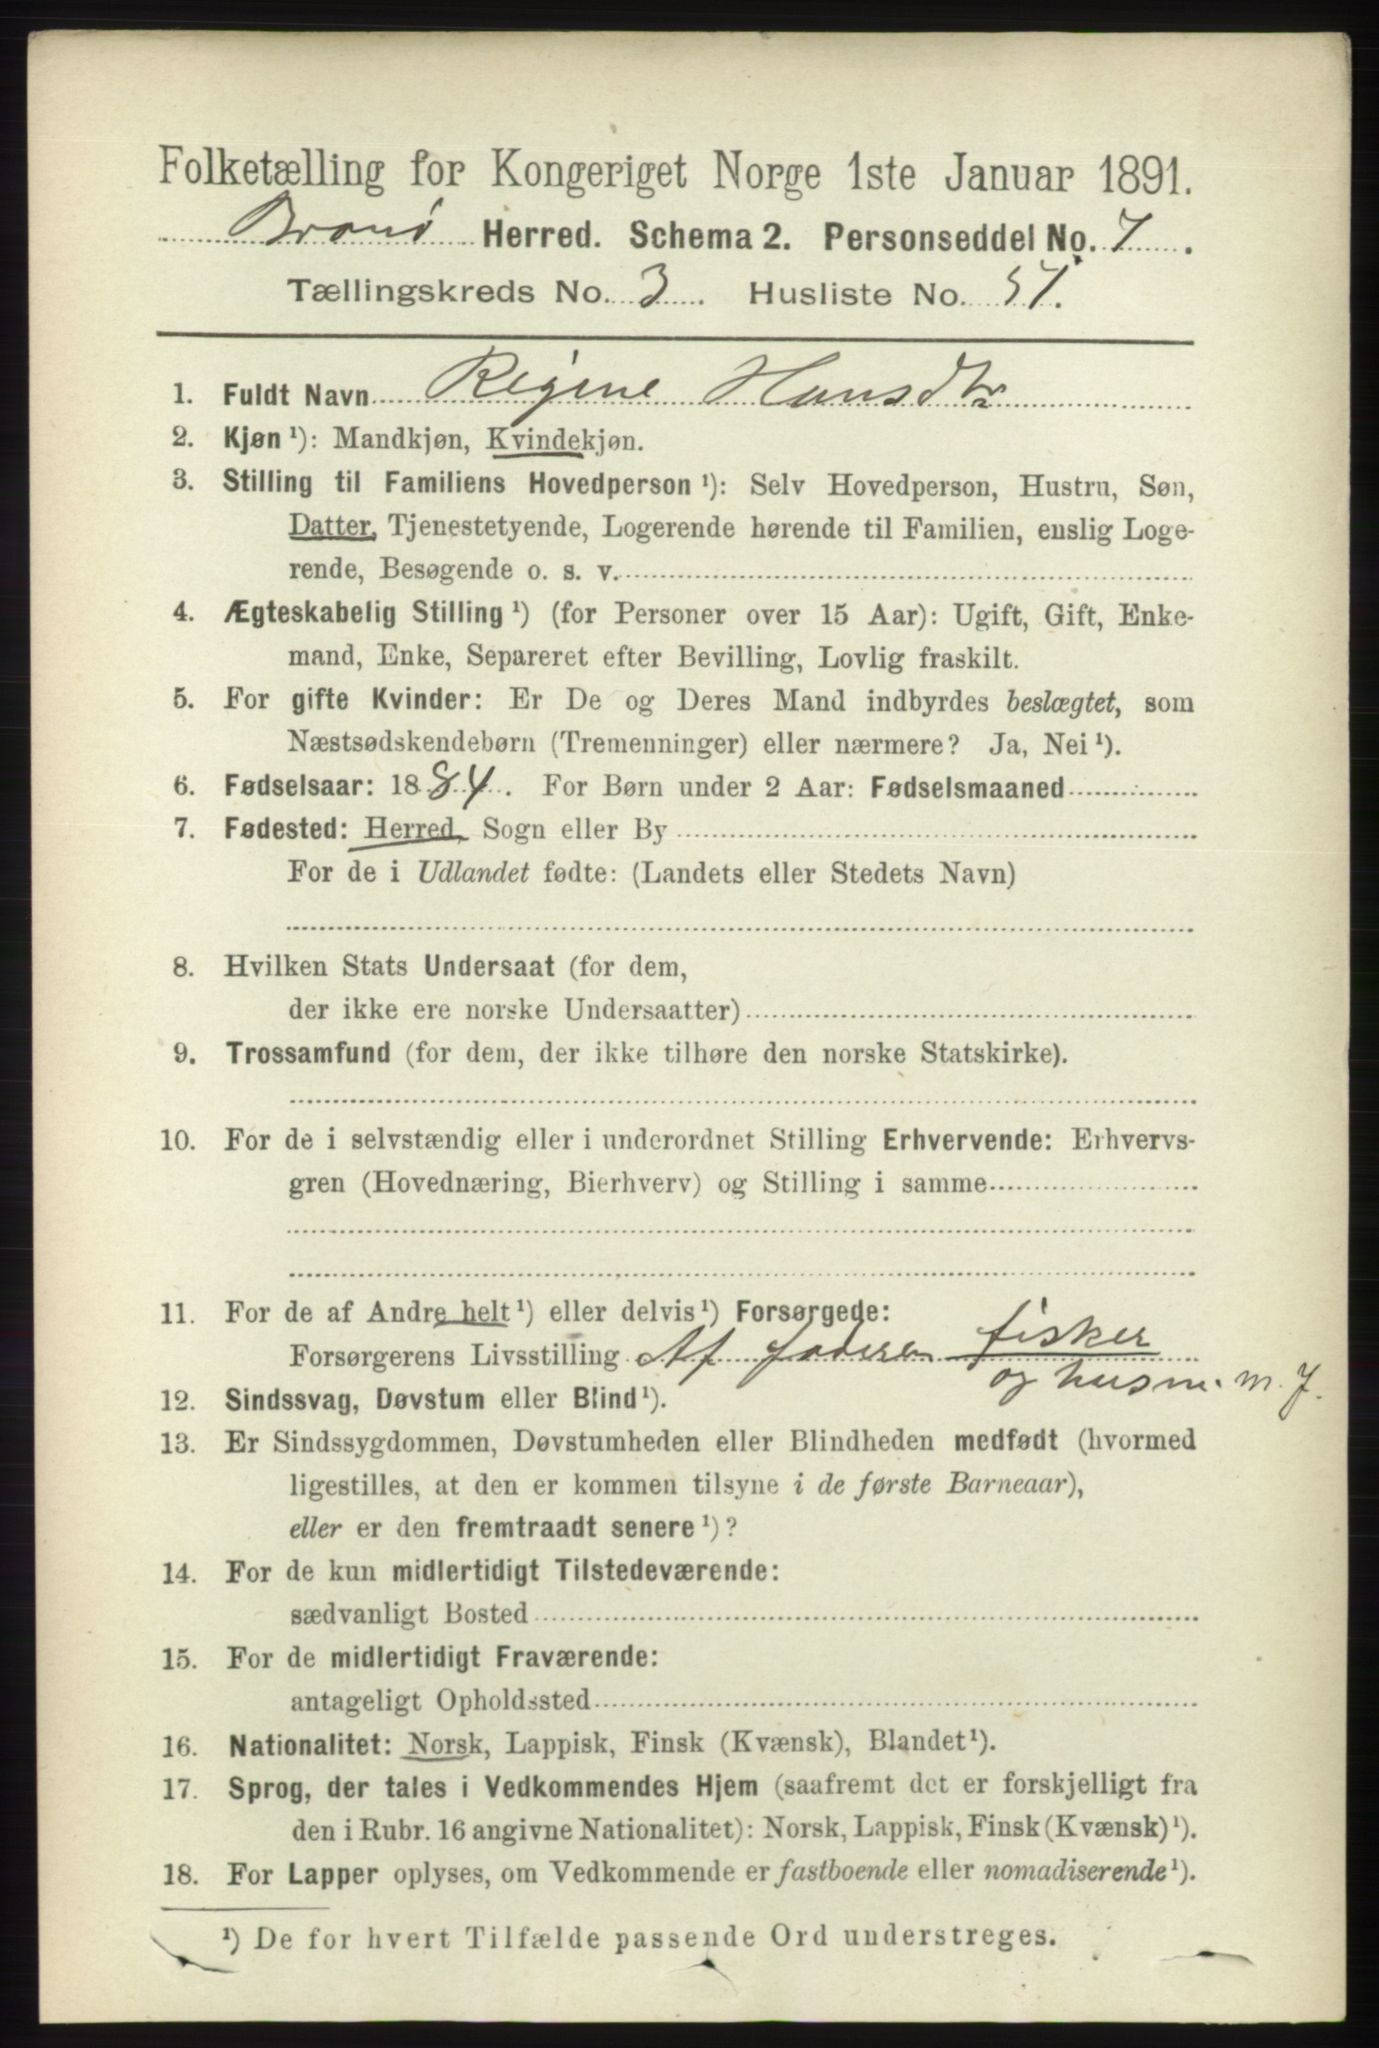 Folketælling for Kongeriget Norge 1ste Januar 1891.
Brønø Herred. Schema 2. Personseddel No. 7.
Tællingskreds No. 3. Husliste No. 51.
1. Fuldt Navn Regine Hansdtr
2. Kjøn ¹): Mandkjøn, Kvindekjøn.
3. Stilling til Familiens Hovedperson ¹): Selv Hovedperson, Hustru, Søn,
Datter, Tjenestetyende, Logerende hørende til Familien, enslig Loge-
rende, Besøgende o. s. v.
4. Ægteskabelig Stilling ¹) (for Personer over 15 Aar): Ugift, Gift, Enke-
mand, Enke, Separeret efter Bevilling, Lovlig fraskilt.
5. For gifte Kvinder: Er De og Deres Mand indbyrdes beslægtet, som
Næstsødskendebørn (Tremenninger) eller nærmere? Ja, Nei ¹).
6. Fødselsaar: 1884. For Børn under 2 Aar: Fødselsmaaned
7. Fødested: Herred, Sogn eller By
For de i Udlandet fødte: (Landets eller Stedets Navn)
8. Hvilken Stats Undersaat (for dem,
der ikke ere norske Undersaatter)
9. Trossamfund (for dem, der ikke tilhøre den norske Statskirke).
10. For de i selvstændig eller i underordnet Stilling Erhvervende: Erhvervs-
gren (Hovednæring, Bierhverv) og Stilling i samme
11. For de af Andre helt ¹) eller delvis ¹) Forsørgede:
Forsørgerens Livsstilling Af faderen fisker
og husm. m. J.
12. Sindssvag, Døvstum eller Blind ¹).
13. Er Sindssygdommen, Døvstumheden eller Blindheden medfødt (hvormed
ligestilles, at den er kommen tilsyne i de første Barneaar),
eller er den fremtraadt senere ¹)?
14. For de kun midlertidigt Tilstedeværende:
sædvanligt Bosted
15. For de midlertidigt Fraværende:
antageligt Opholdssted
16. Nationalitet: Norsk, Lappisk, Finsk (Kvænsk), Blandet ¹).
17. Sprog, der tales i Vedkommendes Hjem (saafremt det er forskjelligt fra
den i Rubr. 16 angivne Nationalitet): Norsk, Lappisk, Finsk (Kvænsk) ¹).
18. For Lapper oplyses, om Vedkommende er fastboende eller nomadiserende ¹).
¹) De for hvert Tilfælde passende Ord understreges.